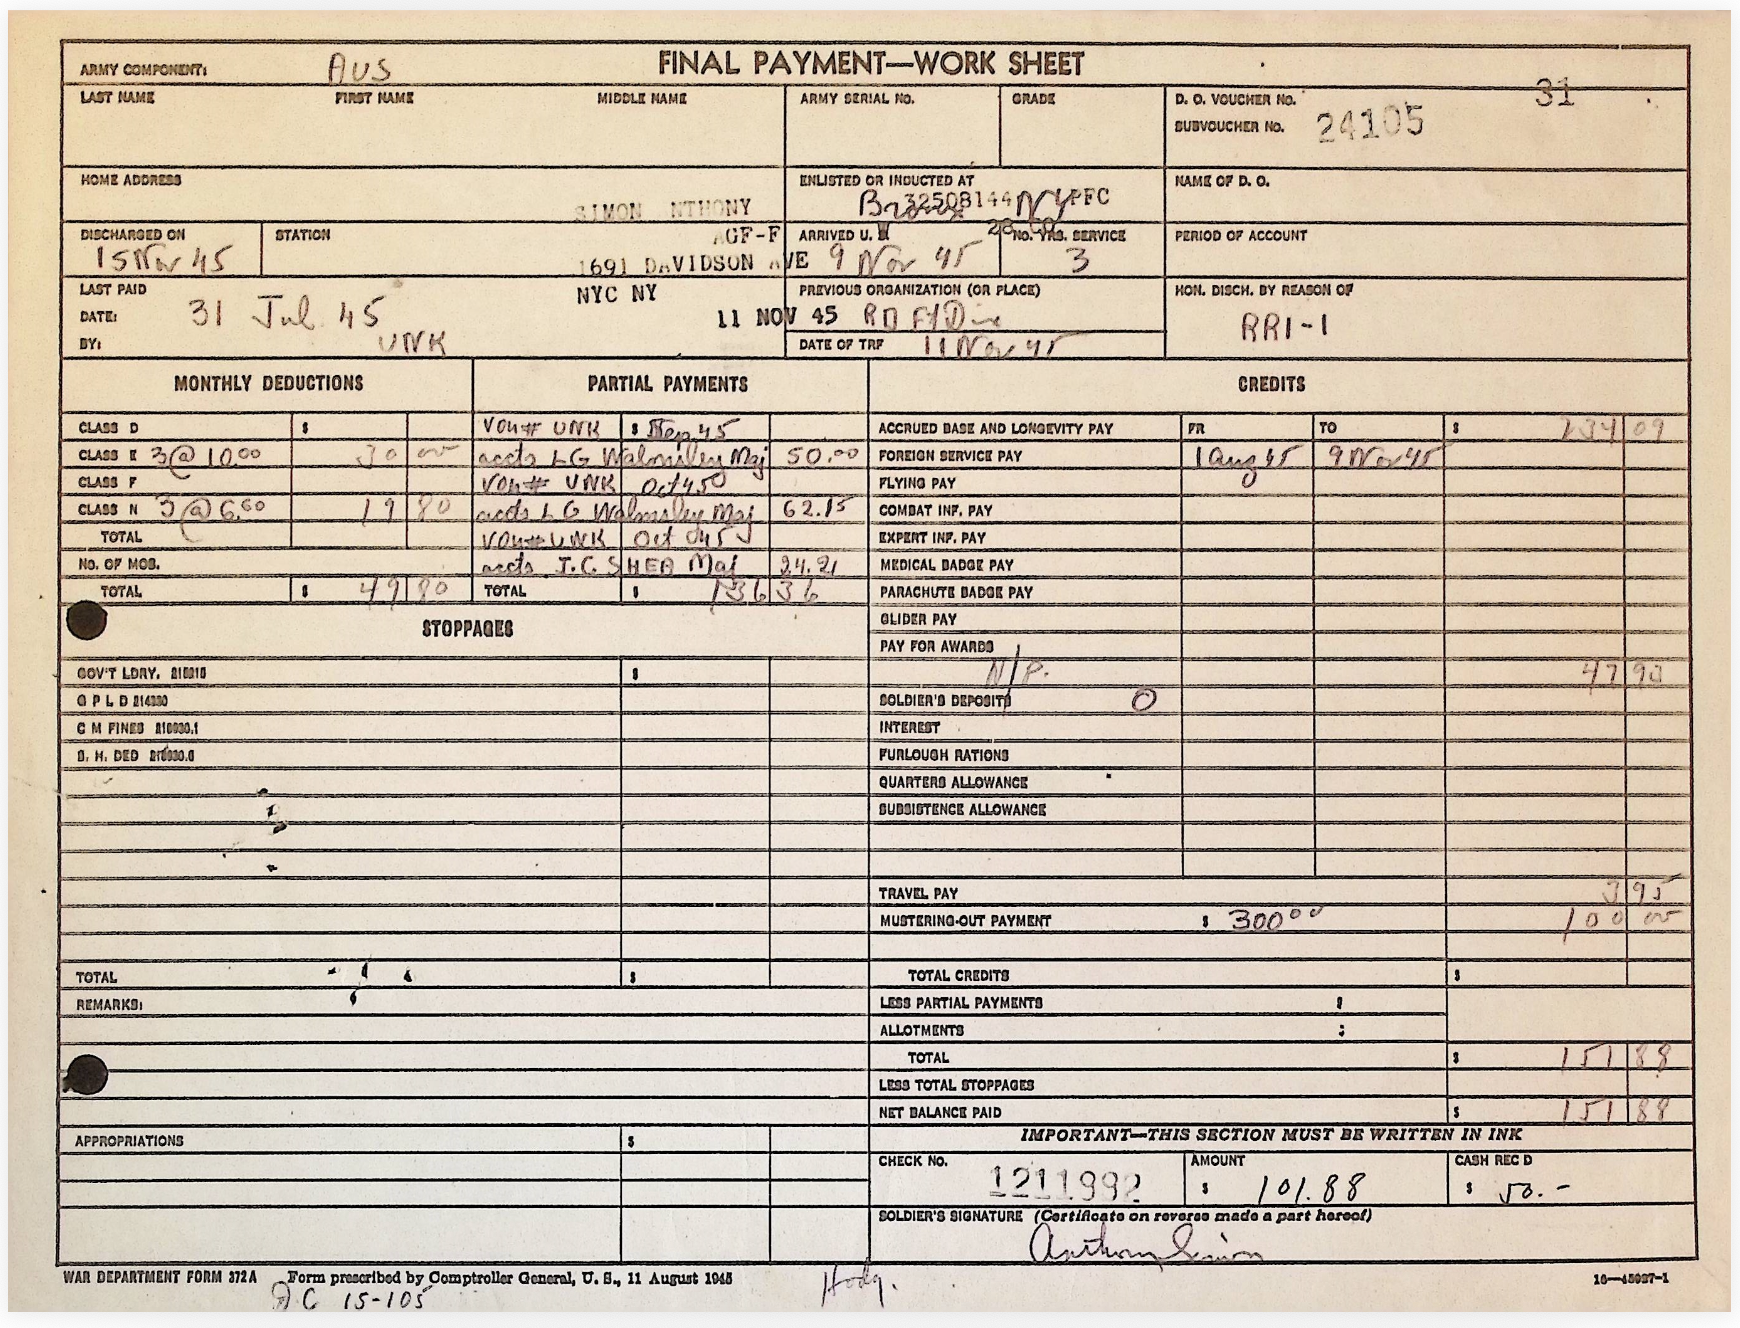 ARMY COMPONENT: AUS FINAL PAYMENT—WORK SHEET
LAST NAME FIRST NAME MIDDLE NAME ARMY SERIAL NO. GRADE D. O. VOUCHER NO. 31
SUBVOUCHER NO. 24105
HOME ADDRESS ENLISTED OR INDUCTED AT NAME OF D. O.
SIMON NTHONY 32508144 NY PFC
DISCHARGED ON STATION AGF-F ARRIVED U. S. NO. YRS. SERVICE PERIOD OF ACCOUNT
15 Nov 45 1691 DAVIDSON AVE 9 Nov 45 3
LAST PAID NYC NY PREVIOUS ORGANIZATION (OR PLACE) HON. DISCH. BY REASON OF
DATE: 31 Jul 45 11 NOV 45 RRI-1
BY: UNK DATE OF TRF 11 Nov 45
MONTHLY DEDUCTIONS PARTIAL PAYMENTS CREDITS
CLASS D $ Vou# UNK $ Sep 45 ACCRUED BASE AND LONGEVITY PAY FR TO $ 234 09
CLASS E 3@10.00 30 00 accts LG Walmsley Maj 50.00 FOREIGN SERVICE PAY 1 Aug 45 9 Nov 45
CLASS F Vou# UNK Oct 45 FLYING PAY
CLASS N 3@6.60 19 80 accts LG Walmsley Maj 62.15 COMBAT INF. PAY
TOTAL Vou# UNK Oct 45 EXPERT INF. PAY
NO. OF MOS. accts J.C. SHEA Maj 24.21 MEDICAL BADGE PAY
TOTAL $ 49 80 TOTAL $ 136 36 PARACHUTE BADGE PAY
STOPPAGES GLIDER PAY
PAY FOR AWARDS
GOV'T LDRY. $ N/P. 47 93
G P L D SOLDIER'S DEPOSITS 0
C M FINES INTEREST
S. H. DED FURLOUGH RATIONS
QUARTERS ALLOWANCE
SUBSISTENCE ALLOWANCE
TRAVEL PAY 3 95
MUSTERING-OUT PAYMENT $ 300 00 100 00
TOTAL $ TOTAL CREDITS $
REMARKS: LESS PARTIAL PAYMENTS $
ALLOTMENTS $
TOTAL $ 151 88
LESS TOTAL STOPPAGES
NET BALANCE PAID $ 151 88
APPROPRIATIONS $ IMPORTANT—THIS SECTION MUST BE WRITTEN IN INK
CHECK NO. 1211992 AMOUNT $ 101.88 CASH REC D $ 50.-
SOLDIER'S SIGNATURE (Certificate on reverse made a part hereof)
Anthony Simon
WAR DEPARTMENT FORM 372A Form prescribed by Comptroller General, U. S., 11 August 1945 16—45027-1
C 15-105